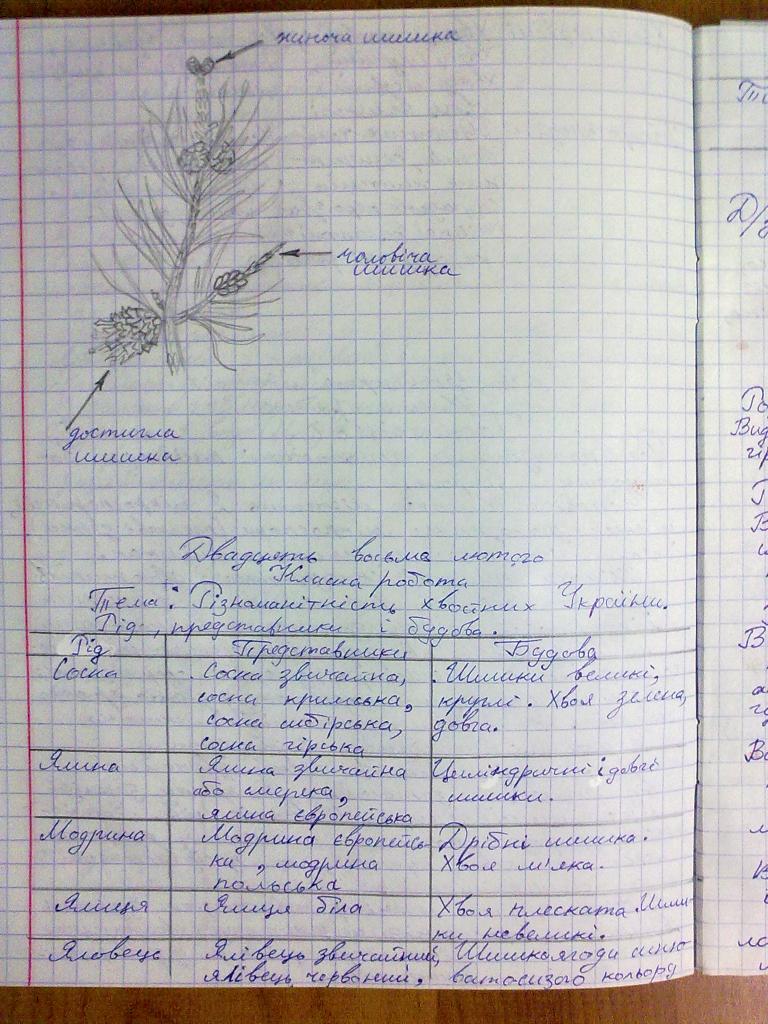 жиноча шишка
чоловіча
шишка
достигла
шишка
Двадцять восьма лютого
Класна робота
Тема: Різноманітність хвойних України.
Рід, представники і будова.
Рід Представники Будова
Сосна Сосна звичайна, Шишки великі,
сосна кримська, круглі. Хвоя зелена,
сосна сибірська, довга.
сосна гірська
Ялина Ялина звичайна Циліндричні і довгі
або смерека, шишки.
ялина європейська
Модрина Модрина європейсь- Дрібні шишка.
ка, модрина Хвоя м'яка.
польська
Ялиця Ялиця біла Хвоя плеската. Шиш-
ки невеликі.
Яловець Ялівець звичайний, Шишкоягоди синю-
ялівець червоний. ватосизого кольору
Д/з